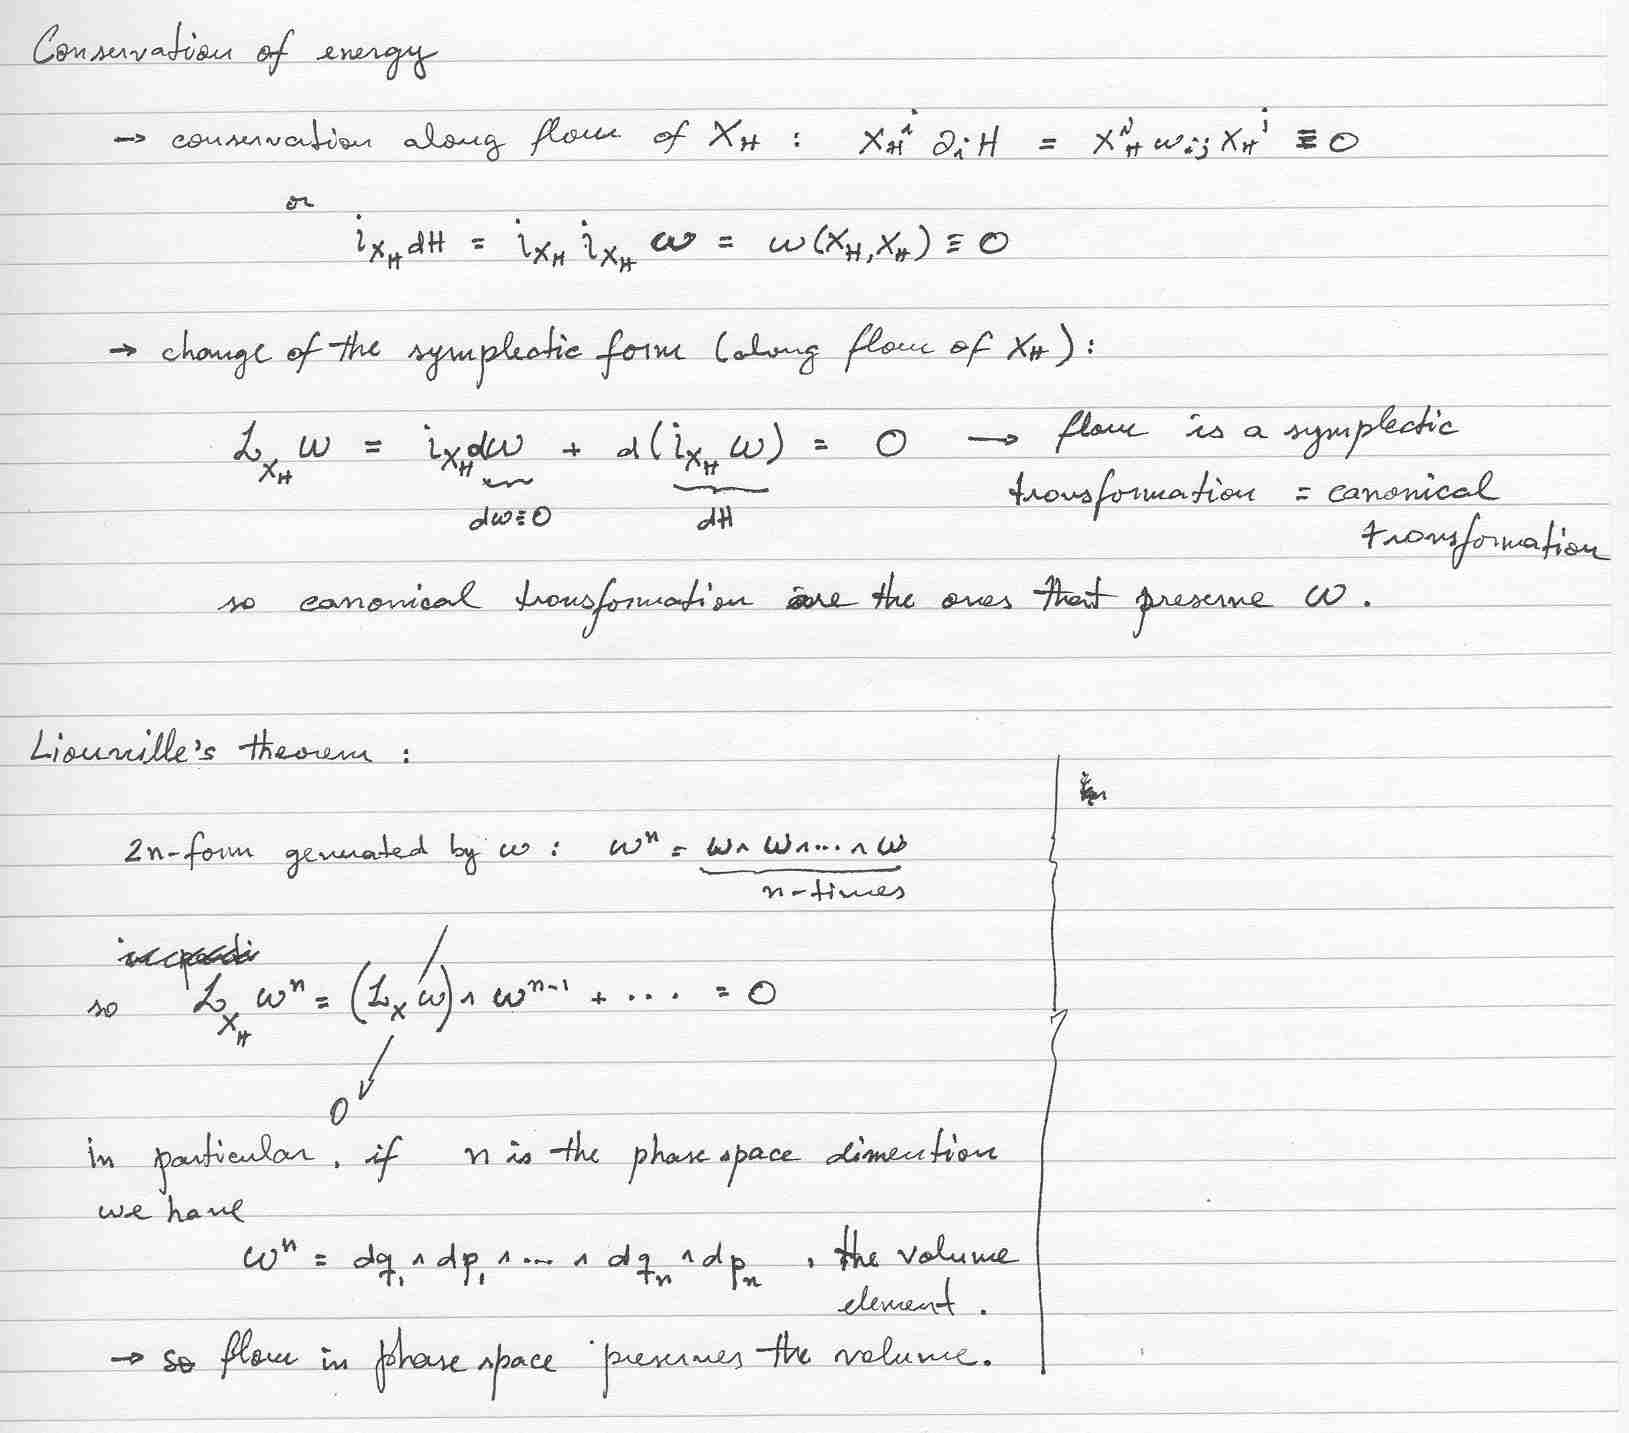 Conservation of energy
→ conservation along flow of X_H : X_H^i ∂_i H = X_H^i ω_ij X_H^j ≡ 0
or
i_{X_H} dH = i_{X_H} i_{X_H} ω = ω(X_H, X_H) ≡ 0
→ change of the symplectic form (along flow of X_H) :
L_{X_H} ω = i_{X_H} dω + d(i_{X_H} ω) = 0 → flow is a symplectic
dω≡0 dH transformation = canonical
transformation
so canonical transformation are the ones that preserve ω.
Liouville's theorem :
2n-form generated by ω : ω^n = ω∧ω∧...∧ω
n-times
so L_{X_H} ω^n = (L_X ω) ∧ ω^{n-1} + .... = 0
0
in particular, if n is the phase space dimention
we have
ω^n = dq_1 ∧ dp_1 ∧ ... ∧ dq_n ∧ dp_n , the volume
element.
→ so flow in phase space preserves the volume.